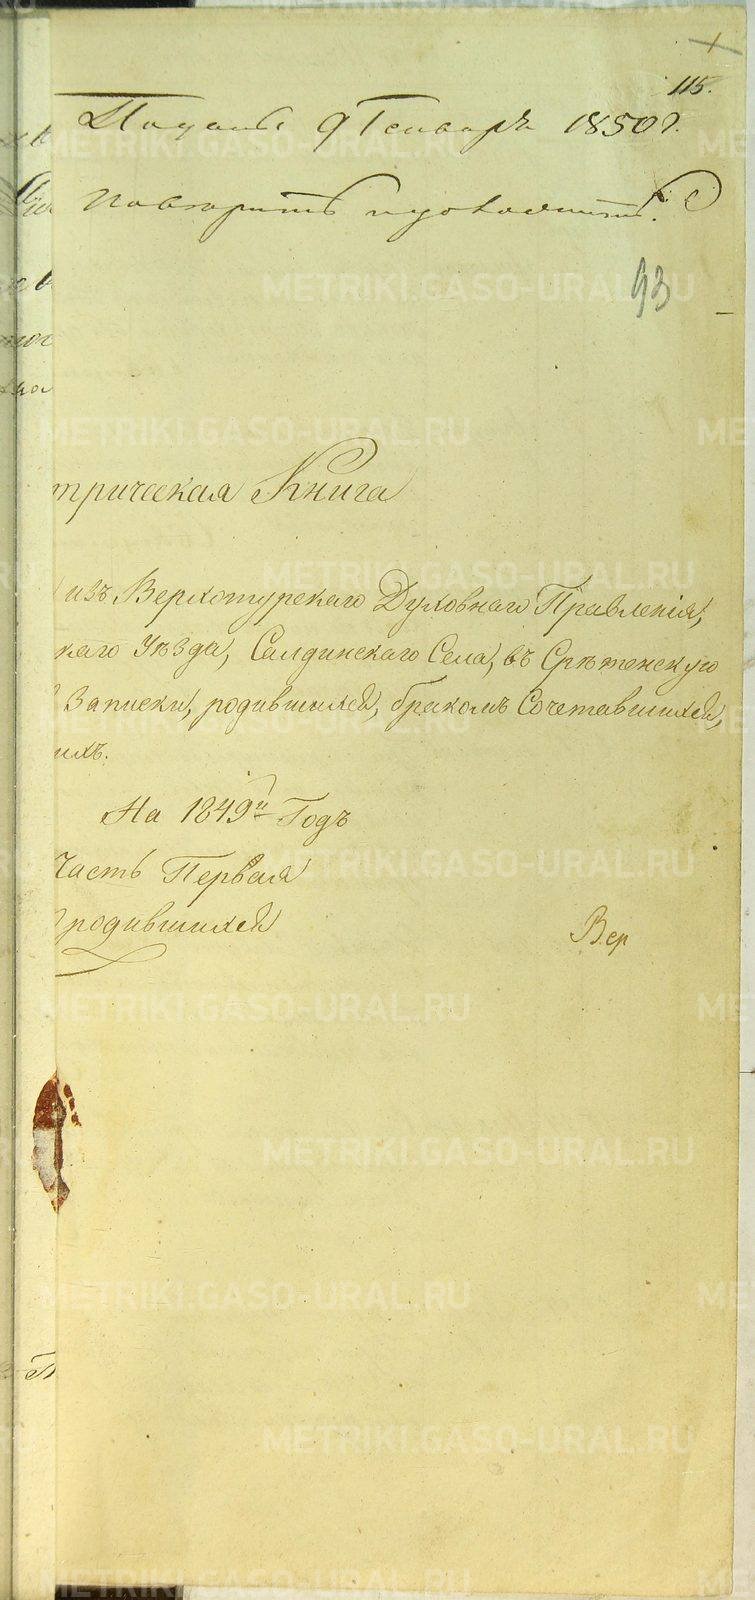 115.
Подана 9 Генваря 1850 г.
93
трическая Книга
изъ Верхотурскаго Духовнаго Правленія,
каго Уѣзда, Салдинскаго Села, въ Срѣтенскую
записки, родившихся, бракомъ Сочетавшихся,
ихъ.
На 1849й Годъ
Часть Первая
родившихся
Вер
METRIKI.GASO-URAL.RU